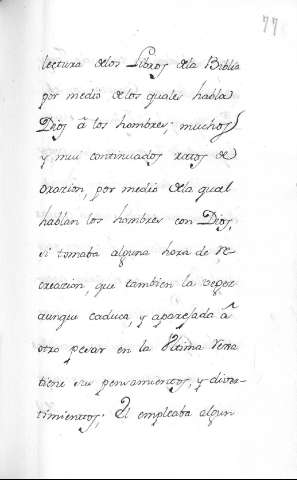 77
lectura de los Libros de la Biblia
por medio de los quales habla
Dios â los hombres: muchos
y mui continuados ratos de
oracion, por medio de la qual
hablan los hombres con Dios,
si tomaba alguna hora de re-
creacion, que tambien la vegez
aunque caduca, y aparejada â
otro pesar en la Ultima
tiene sus pensamientos, y diver-
timientos; El empleaba algun